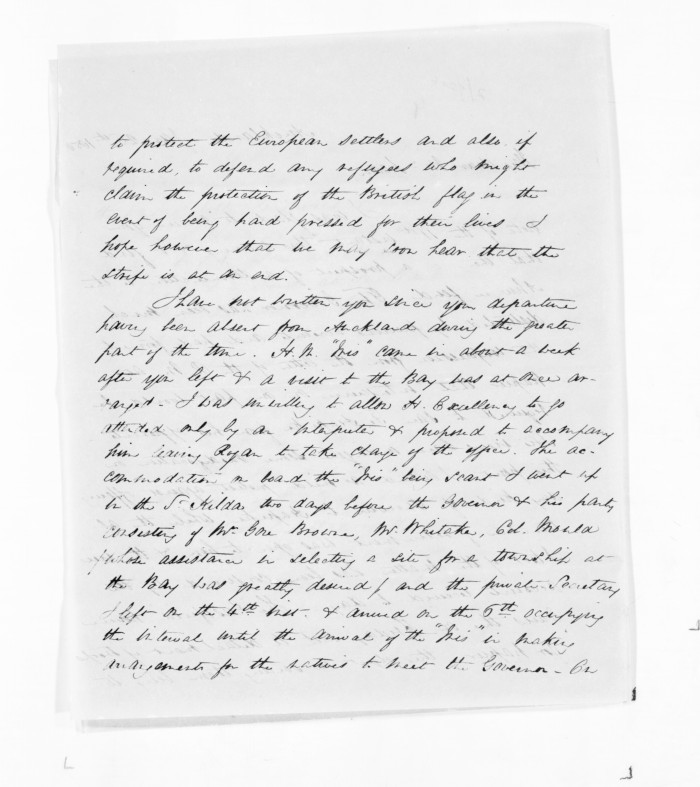 to protect the European settlers and also, if
required, to defend any refugees who might
claim the protection of the British flag in the
event of being hard pressed for their lives I
hope however that we may soon hear that the
strife is at an end.
I have not written you since your departure
having been absent from Auckland during the greater
part of the time. H.M. "Iris" came in about a week
after you left & a visit to the Bay was at once ar-
ranged - I was unwilling to allow H. Excellency to go
attended only by an Interpreter & proposed to accompany
him leaving Rogan to take charge of the office. The ac-
commodation on board the "Iris" being scant I went up
in the St Kilda two days before the Governor & his party
consisting of Mrs Gore Browne, Mr Whitaker, Col. Mould
(whose assistance in selecting a site for a township at
the Bay was greatly desired) and the private Secretary
I left on the 4th inst. & arrived on the 6th occupying
the interval until the arrival of the "Iris" in making
arrangements for the natives to meet the Governor - On